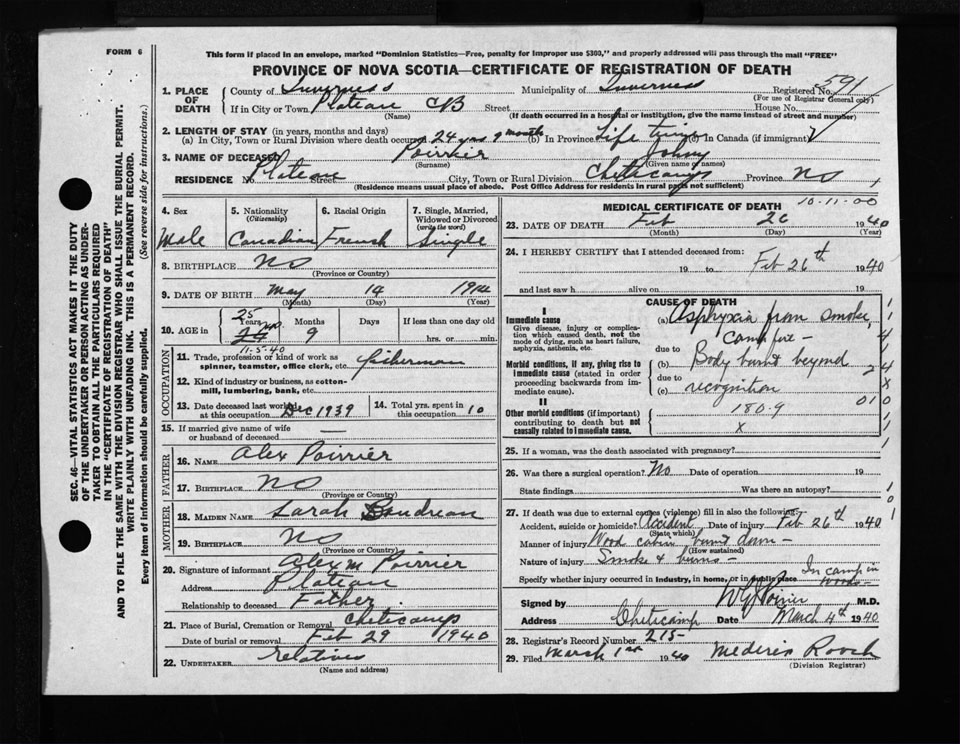 FORM 6
This form if placed in an envelope, marked "Dominion Statistics—Free, penalty for improper use $300," and properly addressed will pass through the mail "FREE"
PROVINCE OF NOVA SCOTIA—CERTIFICATE OF REGISTRATION OF DEATH
SEC. 46—VITAL STATISTICS ACT MAKES IT THE DUTY
OF THE UNDERTAKER OR PERSON ACTING AS UNDER-
TAKER TO OBTAIN ALL THE PARTICULARS REQUIRED
IN THE "CERTIFICATE OF REGISTRATION OF DEATH"
AND TO FILE THE SAME WITH THE DIVISION REGISTRAR WHO SHALL ISSUE THE BURIAL PERMIT.
WRITE PLAINLY WITH UNFADING INK. THIS IS A PERMANENT RECORD.
Every item of information should be carefully supplied. (See reverse side for instructions.)
1. PLACE OF DEATH County of Inverness Municipality of Inverness Registered No. 591
(For use of Registrar General only)
If in City or Town Plateau CB Street House No.
(Name) (If death occurred in a hospital or institution, give the name instead of street and number)
2. LENGTH OF STAY (in years, months and days)
(a) In City, Town or Rural Division where death occurred 24 yrs 9 months (b) In Province Life time (c) In Canada (if immigrant) √
3. NAME OF DECEASED Poirrier Johny
(Surname) (Given name or names)
RESIDENCE No. Plateau Street City, Town or Rural Division Cheticamp Province NS
(Residence means usual place of abode. Post Office Address for residents in rural parts not sufficient)
4. Sex Male
5. Nationality (Citizenship) Canadian
6. Racial Origin French
7. Single, Married, Widowed or Divorced (write the word) Single
8. BIRTHPLACE NS
(Province or Country)
9. DATE OF BIRTH May 14 1914
(Month) (Day) (Year)
10. AGE in 25 24 Years 9 Months Days If less than one day old hrs. or min.
11-5-40
OCCUPATION
11. Trade, profession or kind of work as spinner, teamster, office clerk, etc. fisherman
12. Kind of industry or business, as cotton-mill, lumbering, bank, etc.
13. Date deceased last worked at this occupation Dec 1939
14. Total yrs. spent in this occupation 10
15. If married give name of wife or husband of deceased —
FATHER
16. NAME Alex Poirrier
17. BIRTHPLACE NS
(Province or Country)
MOTHER
18. MAIDEN NAME Sarah Boudreau
19. BIRTHPLACE NS
(Province or Country)
20. Signature of informant Alex M Poirrier
Address Plateau
Relationship to deceased Father
21. Place of Burial, Cremation or Removal Cheticamp
Date of burial or removal Feb 29 1940
22. UNDERTAKER relatives
(Name and address)
MEDICAL CERTIFICATE OF DEATH
10-11-00
23. DATE OF DEATH Feb 26 1940
(Month) (Day) (Year)
24. I HEREBY CERTIFY that I attended deceased from:
19 to Feb 26th 1940
and last saw h alive on 19
CAUSE OF DEATH
I
Immediate cause
Give disease, injury or complication which caused death, not the mode of dying, such as heart failure, asphyxia, asthenia, etc.
(a) Asphyxia from smoke, Camp fire —
due to
Morbid conditions, if any, giving rise to immediate cause (stated in order proceeding backwards from immediate cause).
(b) Body burnt beyond
due to
(c) recognition
II
Other morbid conditions (if important) contributing to death but not causally related to immediate cause.
180-9
X
25. If a woman, was the death associated with pregnancy?
26. Was there a surgical operation? No Date of operation 19
State findings Was there an autopsy?
27. If death was due to external causes (violence) fill in also the following:
Accident, suicide or homicide? Accident Date of injury Feb 26th 1940
(State which)
Manner of injury Wood cabin burnt down —
(How sustained)
Nature of injury Smoke & burns —
Specify whether injury occurred in industry, in home, or in public place In camp in woods —
Signed by M.D.
Address Cheticamp Date March 4th 1940
28. Registrar's Record Number 215
29. Filed March 1st 1940
(Division Registrar)